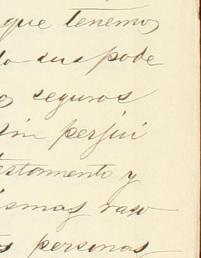 que tenemos
do sus pode
os seguros
sin perjui
testamento y
ismas raso
as personas